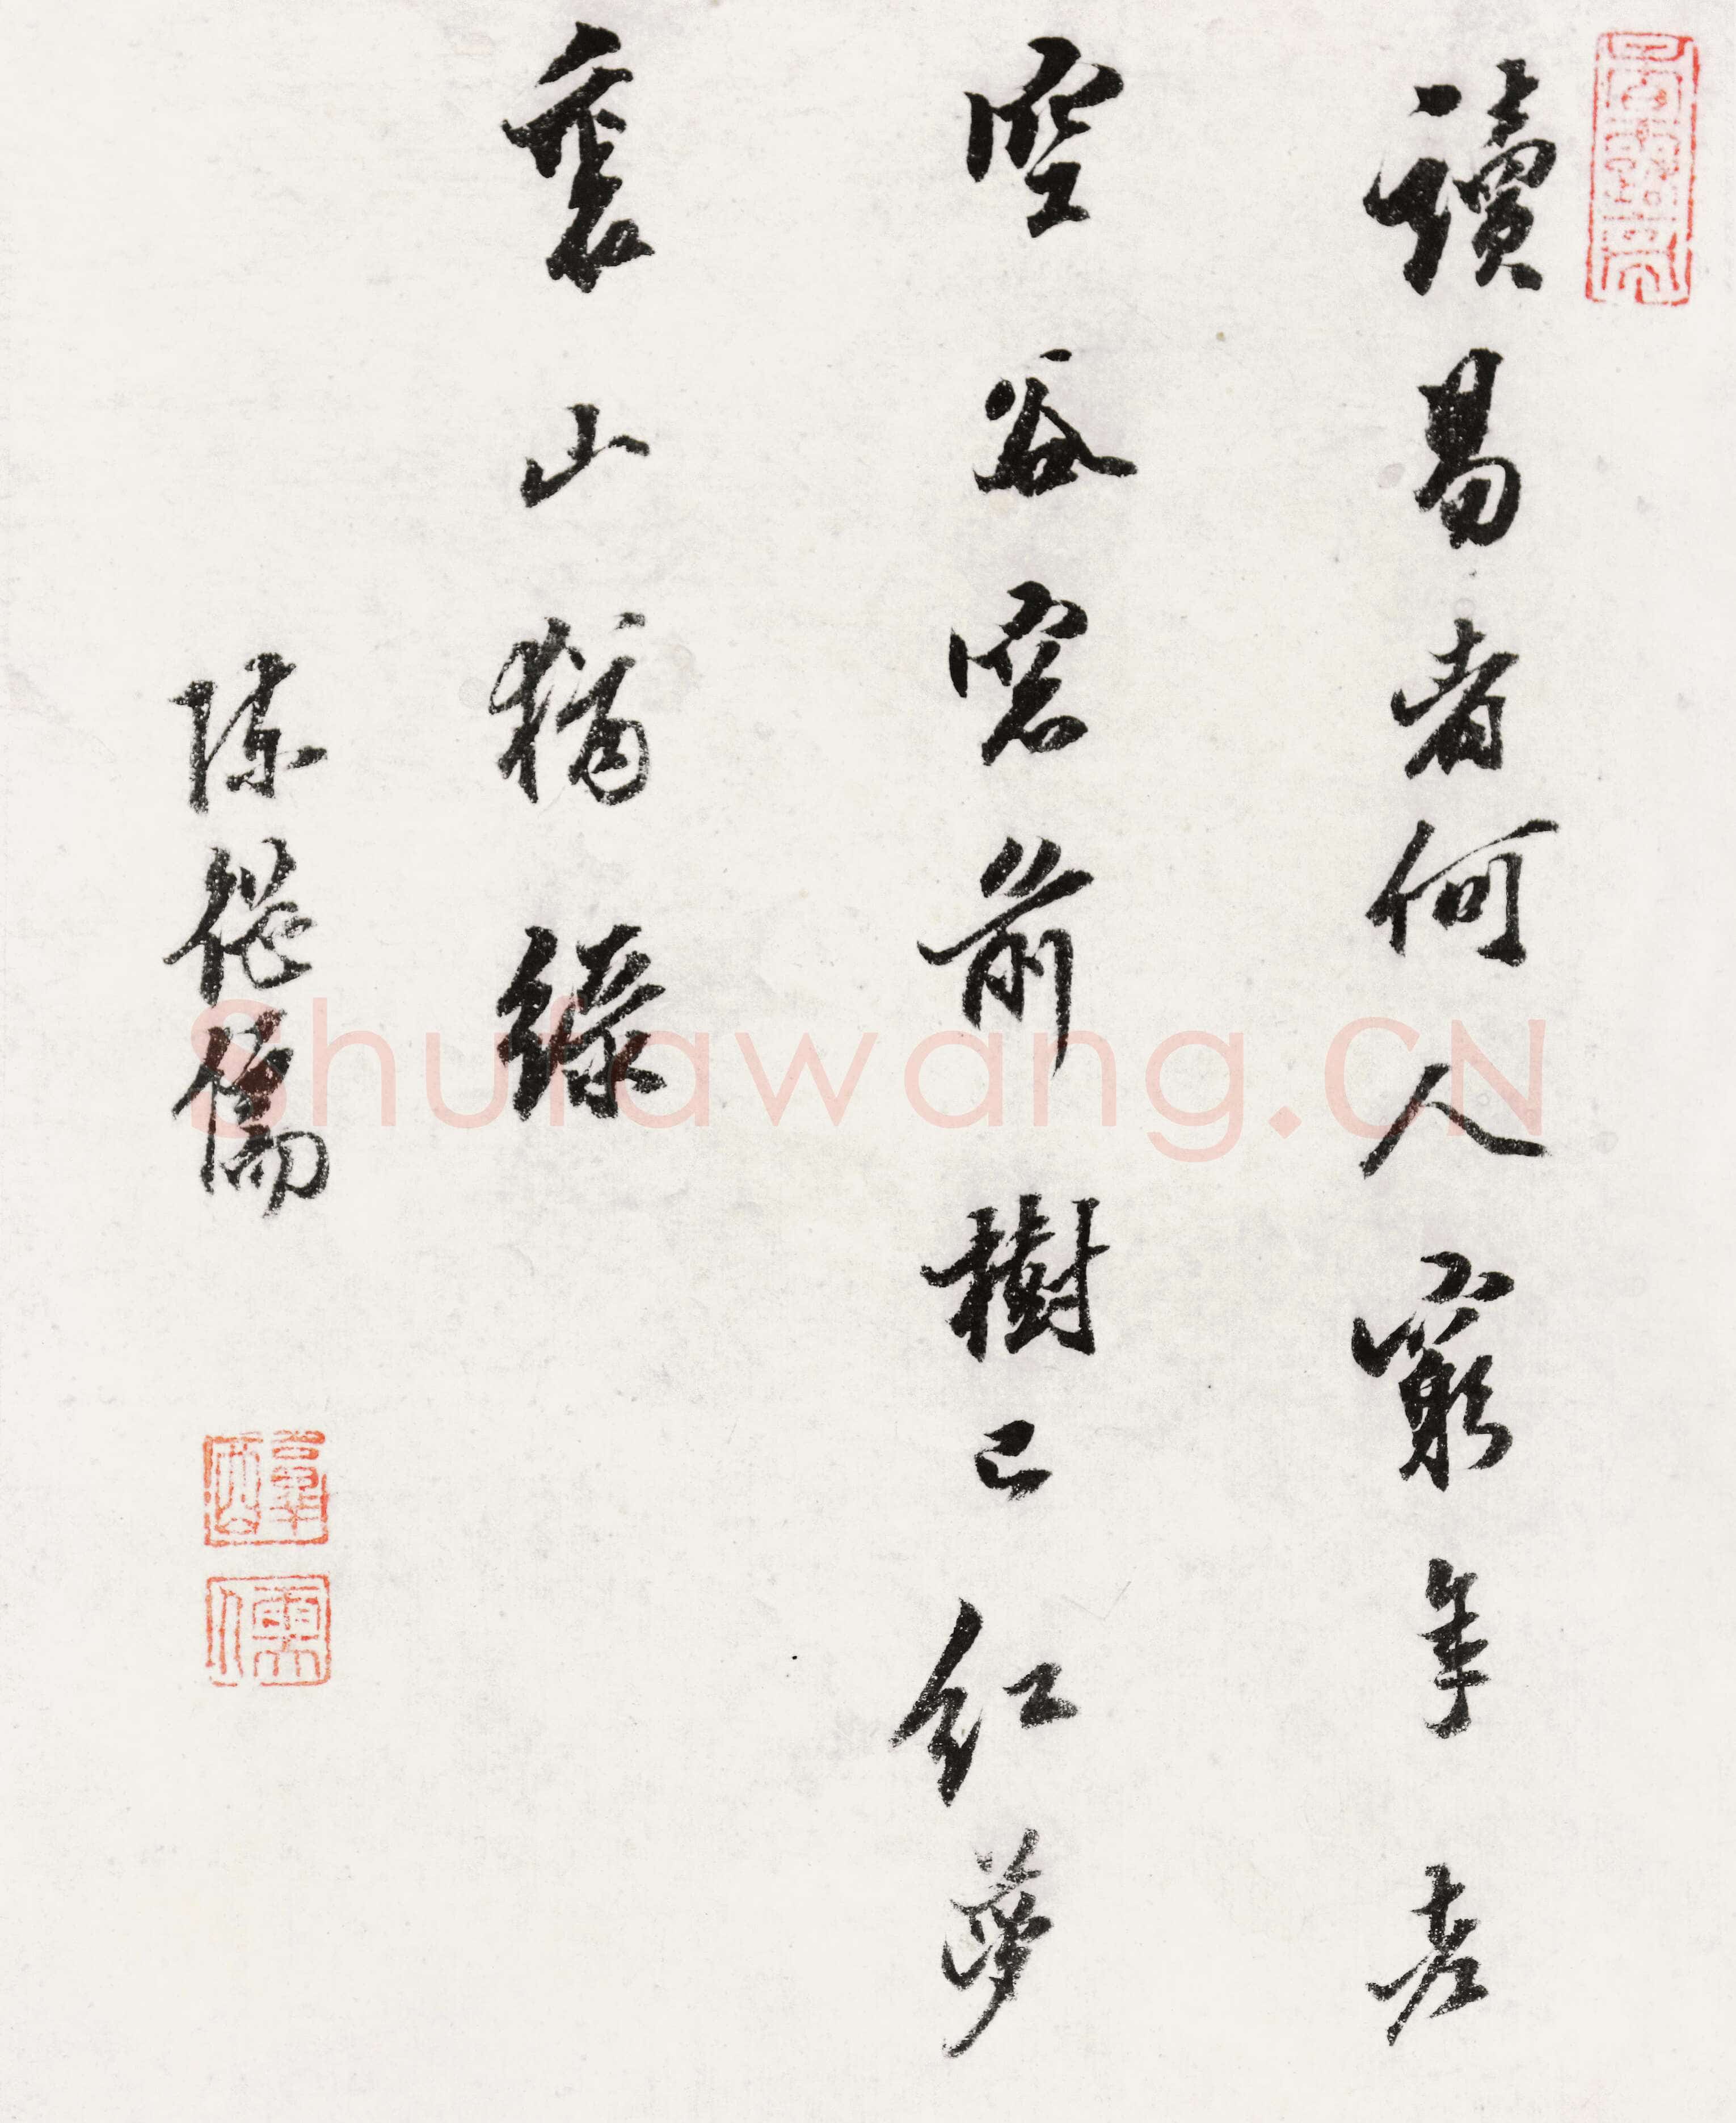 讀易者何人窮年老
空谷窓前樹已紅夢
裏山猶綠
陳繼儒
Shufawang.CN